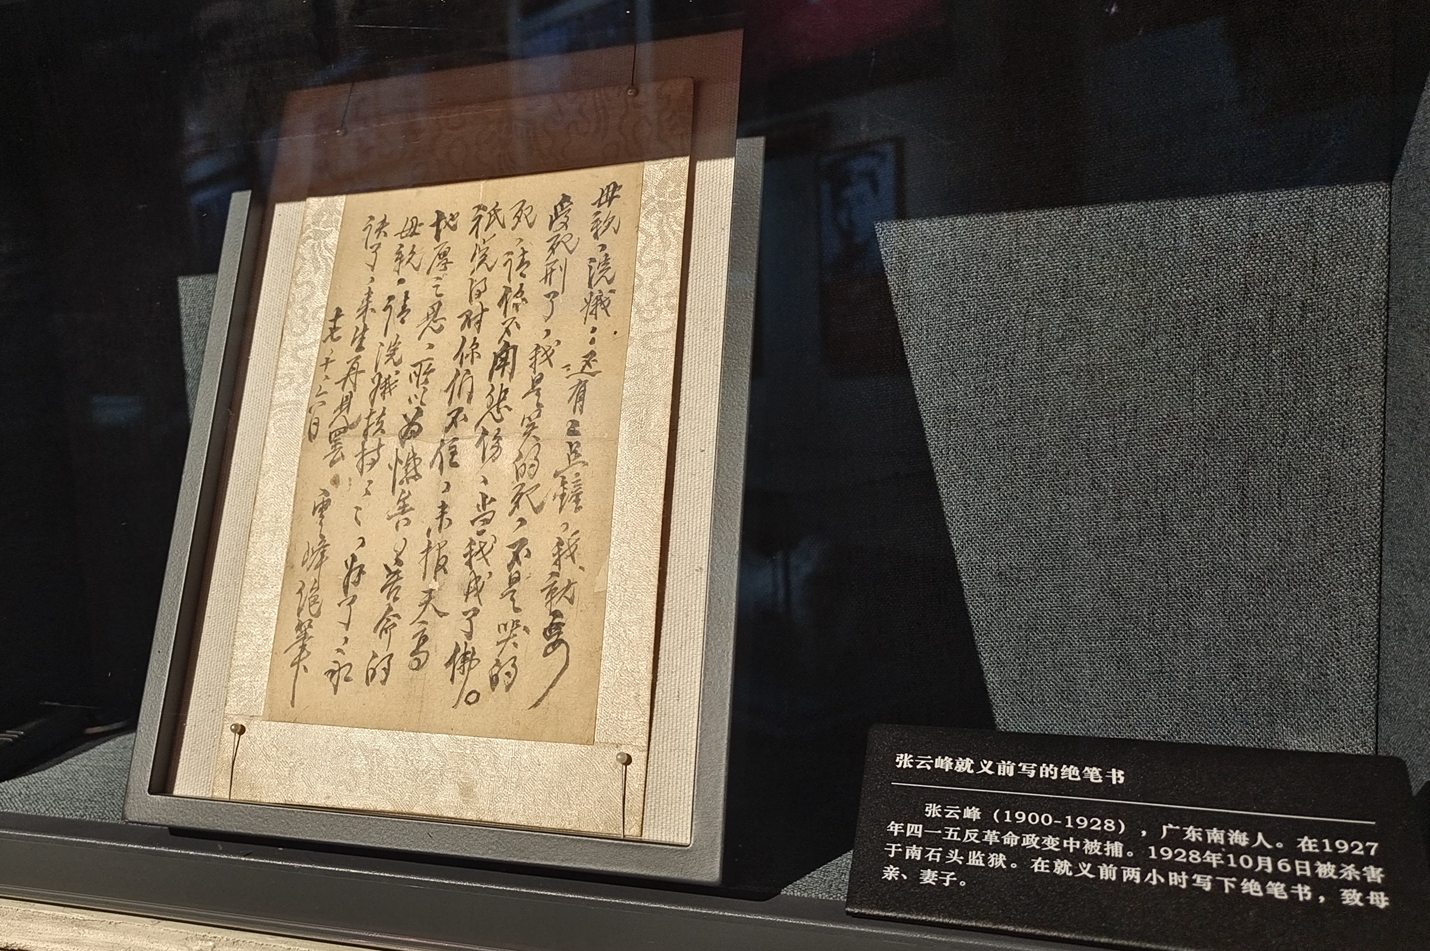 母親、浣熾：還有二点鐘、我就要
受死刑了、我是笑的死、不是哭的
死、請你不用悲傷、当我成了佛。
祇 得对你 不住、未报天高
地厚之恩、所以為憾 苦命的
母親、請浣熾扶持〻〻、好了、永
訣了、來生再見罷
雲峰絕筆
十、六日
张云峰就义前写的绝笔书
张云峰（1900-1928），广东南海人。在1927
年四一五反革命政变中被捕。1928年10月6日被杀害
于南石头监狱。在就义前两小时写下绝笔书，致母
亲、妻子。